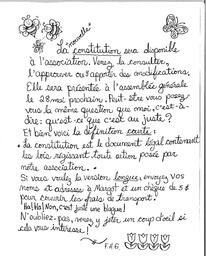 "nouvelle"
La constitution sera disponible
à l'association. Venez la consulter,
l'approuver ou apporter des modifications.
Elle sera présentée à l'assemblée générale
le 28 mai prochain. Peut-être vous posez-
vous la même question que moi, c'est-à-
dire: qu'est-ce que c'est au juste?
Et bien voici la définition courte:
La constitution est le document légal contenant
les lois régissant toute action posée par
notre association.
Si vous voulez la version longue, envoyez vos
noms et adresses à Margot et un chèque de 5$
pour couvrir les frais de transport.
"Ha! Ha! Non, c'est juste une blague!
N'oubliez pas, venez y jeter un coup d'oeil si
cela vous intéresse.
F.A.G.